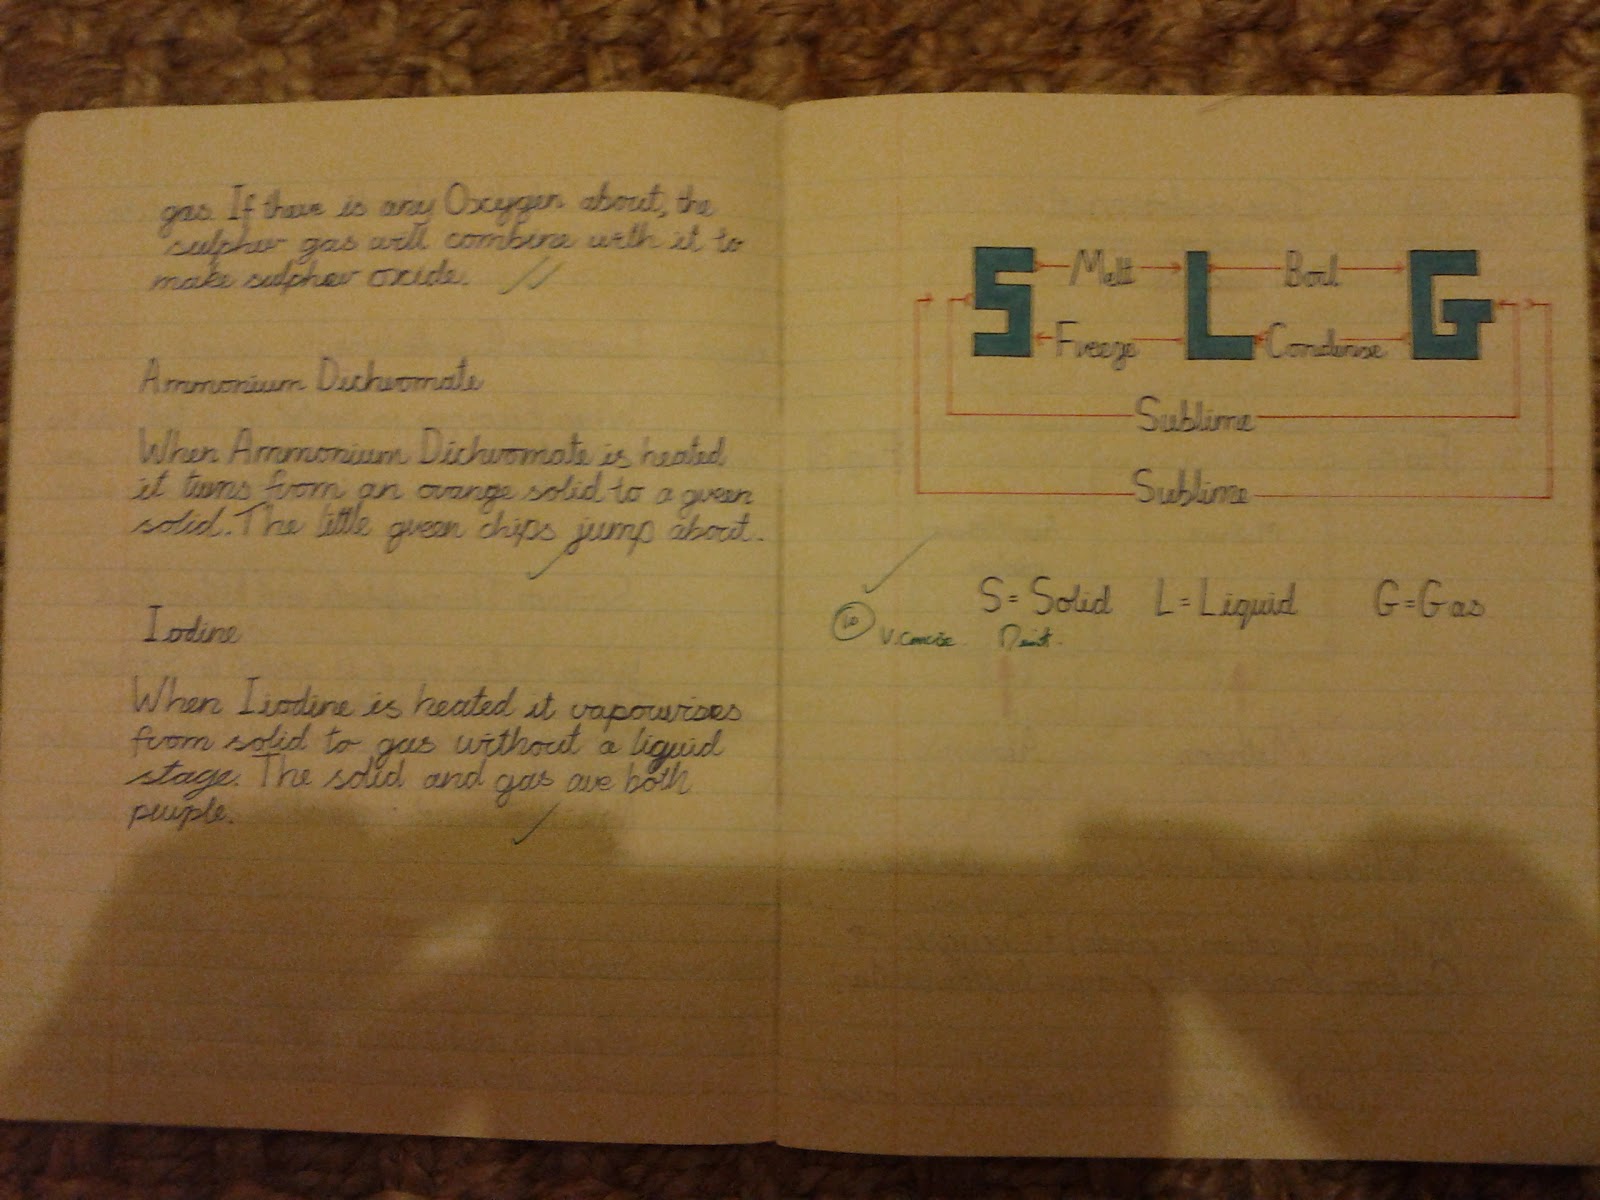 gas. If there is any Oxygen about, the
sulpher gas will combine with it to
make sulpher oxide.
Ammonium Dichromate
When Ammonium Dichromate is heated
it turns from an orange solid to a green
solid. The little green chips jump about.
Iodine
When Iiodine is heated it vapourises
from solid to gas without a liquid
stage. The solid and gas are both
purple.
S Melt L Boil G
Freeze Condense
Sublime
Sublime
S = Solid L = Liquid G = Gas
10 V. concise. Neat.